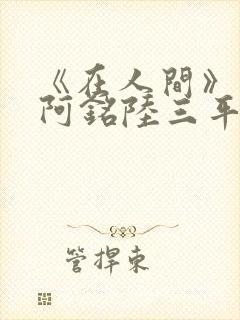 《在人間》
阿銘陸三年
管捍東